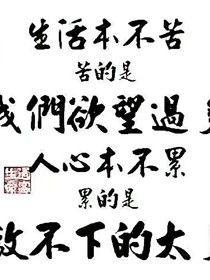 生活本不苦
苦的是
我們欲望過
人心本不累
累的是
放不下的太